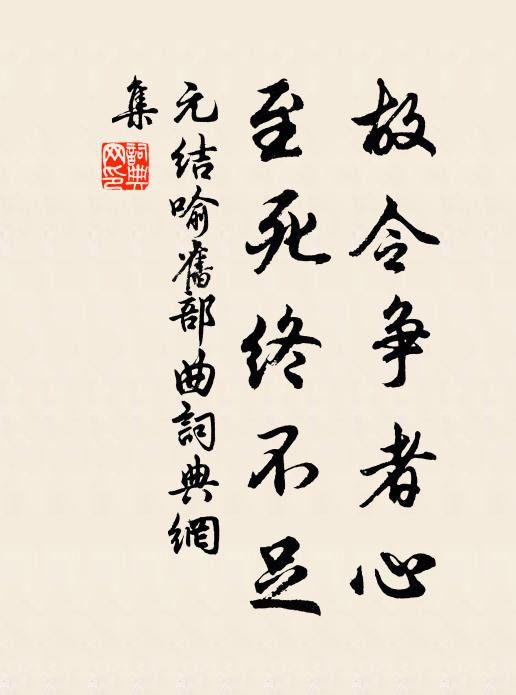 故令争者心
至死终不足
元结喻舊部曲詞典網
集
詞典
网印